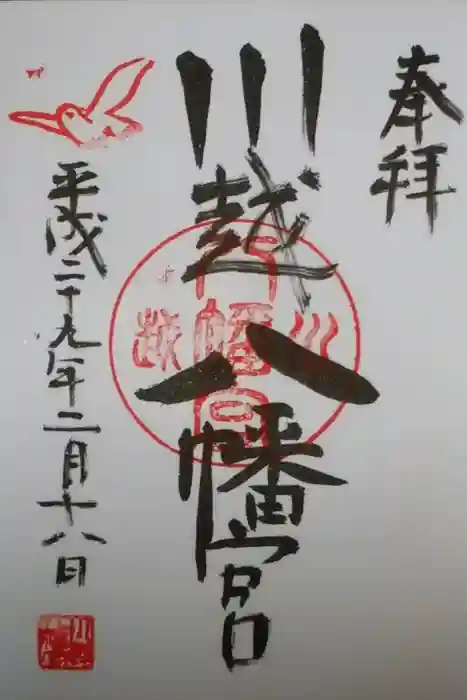 奉拝
川越八幡宮
平成二十九年二月十八日
川 八幡宮 越